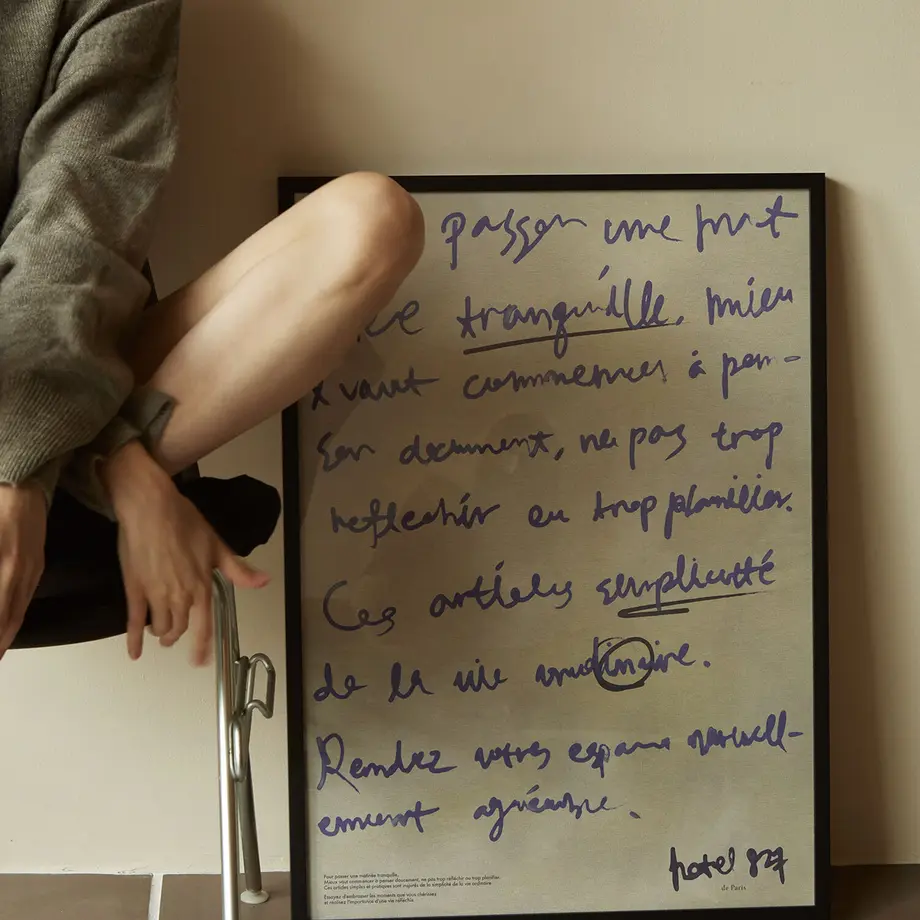 passer une nuit
ce tranquille, mieu
x vaut commencer à pen-
ser doucement, ne pas trop
reflechir ou trop planifier.
Ces articles simplicité
de la vie
Rendez votre espace
agréable.
hotel 827
de Paris
Pour passer une matinée tranquille,
Mieux vaut commencer à penser doucement, ne pas trop réfléchir ou trop planifier.
Ces articles simples et pratiques sont inspirés de la simplicité de la vie ordinaire
Essayez d'embrasser les moments que vous chérissez
et realisez l'importance d'une vie réfléchie.